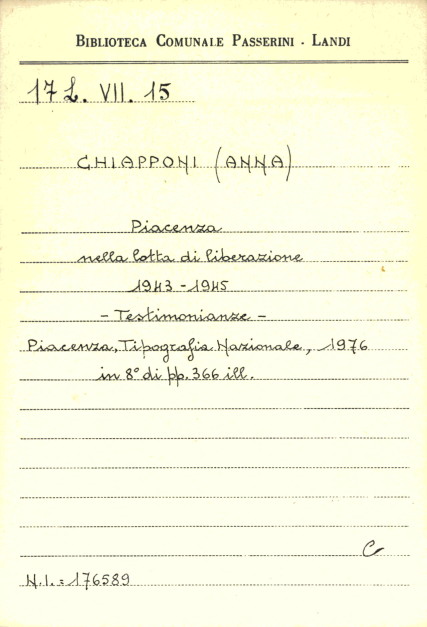 BIBLIOTECA COMUNALE PASSERINI - LANDI
17 L. VII. 15
CHIAPPONI (ANNA)
Piacenza
nella lotta di liberazione
1943 - 1945
- Testimonianze -
Piacenza, Tipografia Nazionale, 1976
in 8° di pp. 366 ill.
C
N.I. = 176589